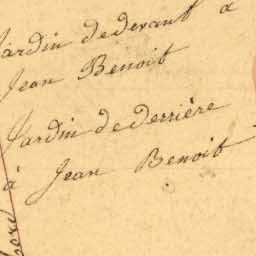 Jardin dedevant a
Jean Benoit
Jardin dederrière
à Jean Benoit